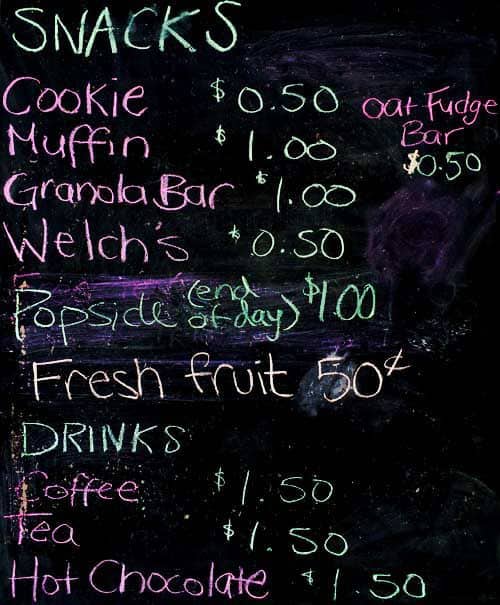 SNACKS
Cookie $0.50
Muffin $1.00
Granola Bar $1.00
Welch's $0.50
oat Fudge
Bar
$0.50
Popsicle (end of day) $1.00
Fresh fruit 50¢
DRINKS
Coffee $1.50
Tea $1.50
Hot Chocolate $1.50